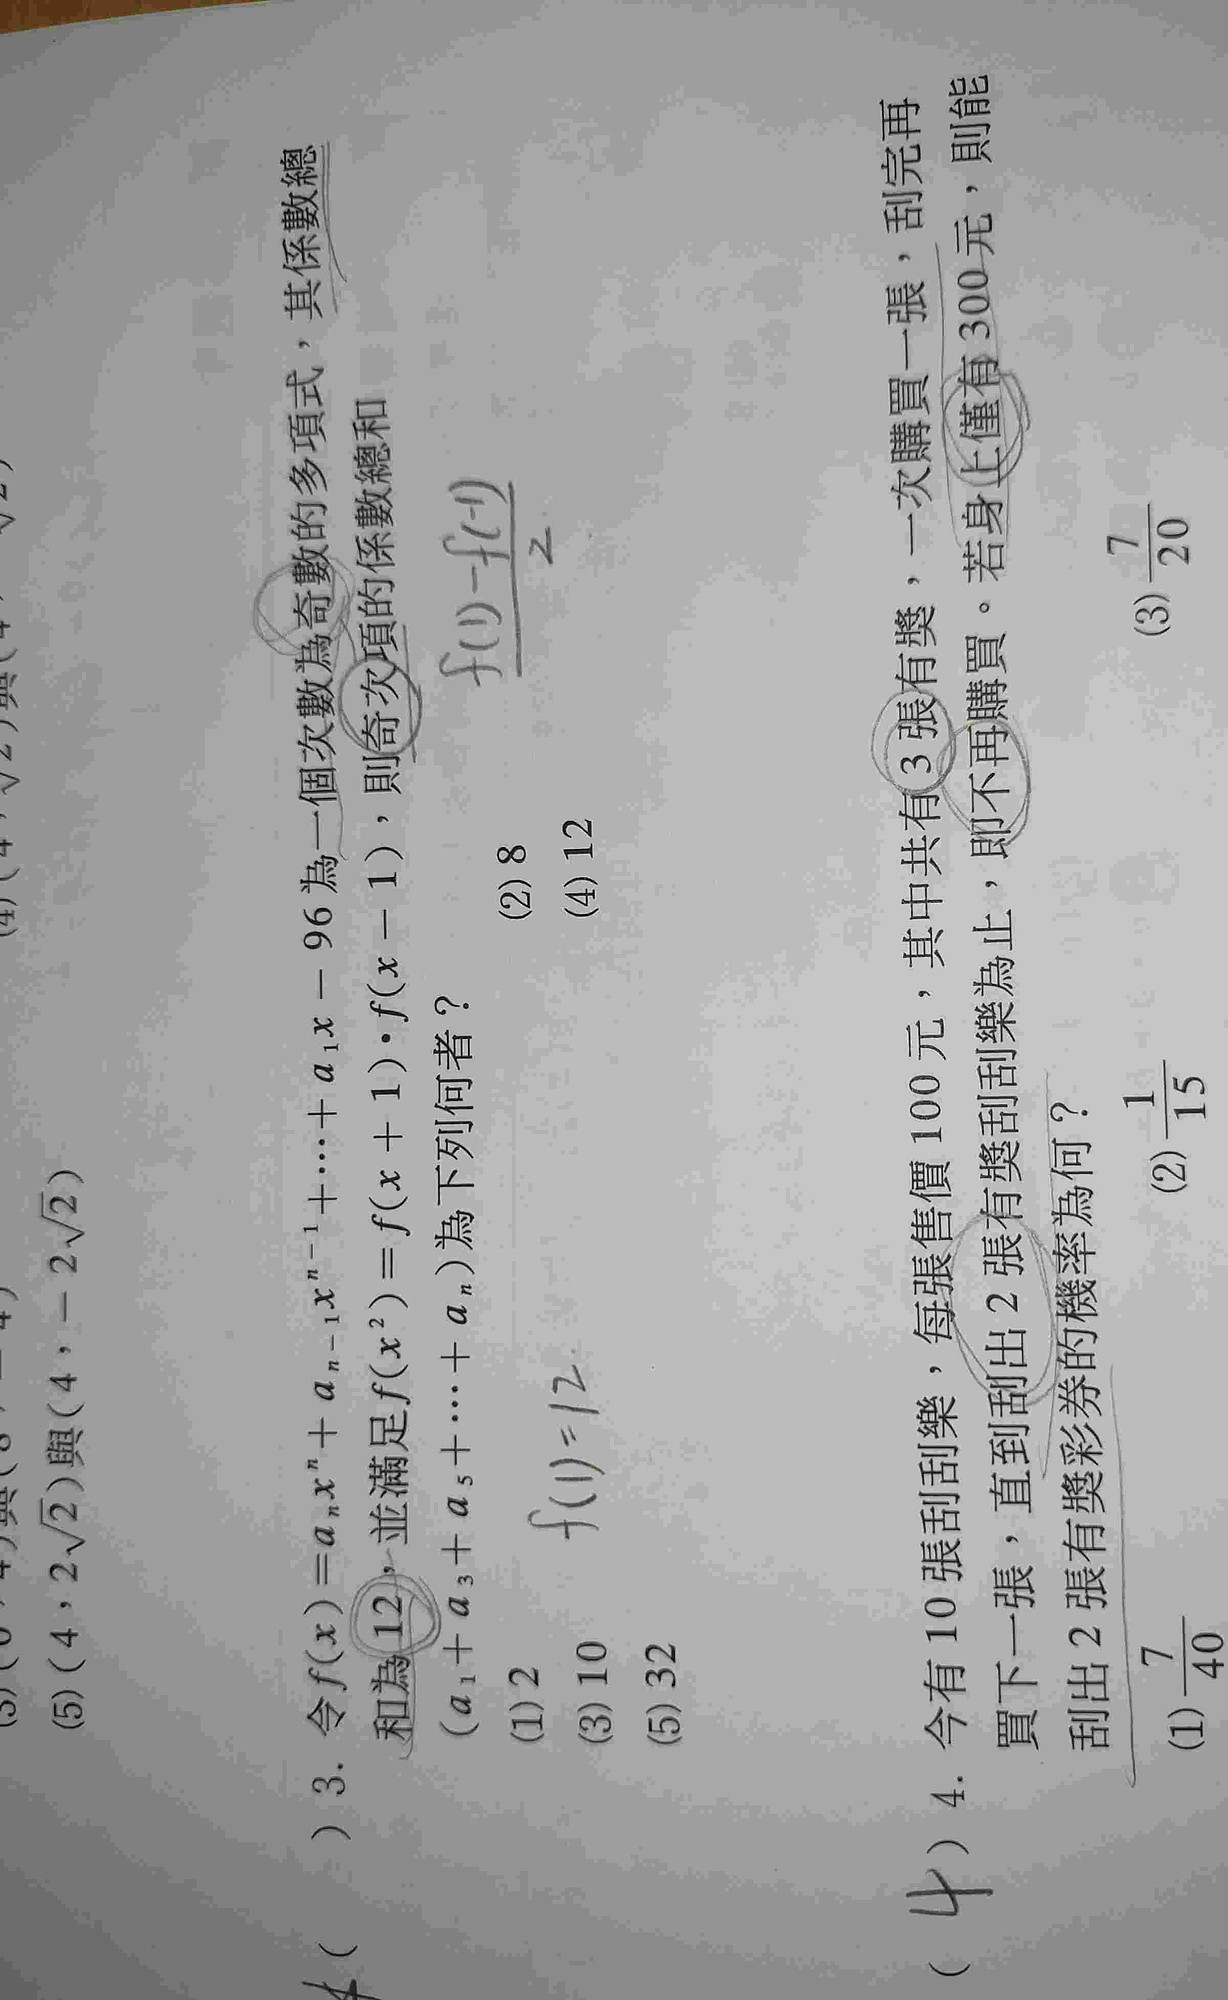 (5)(4，2√2)與(4，－2√2)
)3. 令f(x)＝aₙxⁿ＋aₙ₋₁xⁿ⁻¹＋⋯＋a₁x－96為一個次數為奇數的多項式，其係數總
和為12，並滿足f(x²)＝f(x＋1)·f(x－1)，則奇次項的係數總和
(a₁＋a₃＋a₅＋⋯＋aₙ)為下列何者？
f(1)-f(-1)
2
(1) 2
(2) 8
(3) 10
(4) 12
(5) 32
f(1)=12
(4)4. 今有10張刮刮樂，每張售價100元，其中共有3張有獎，一次購買一張，刮完再
買下一張，直到刮出2張有獎刮刮樂為止，即不再購買。若身上僅有300元，則能
刮出2張有獎彩券的機率為何？
(1) 7/40
(2) 1/15
(3) 7/20